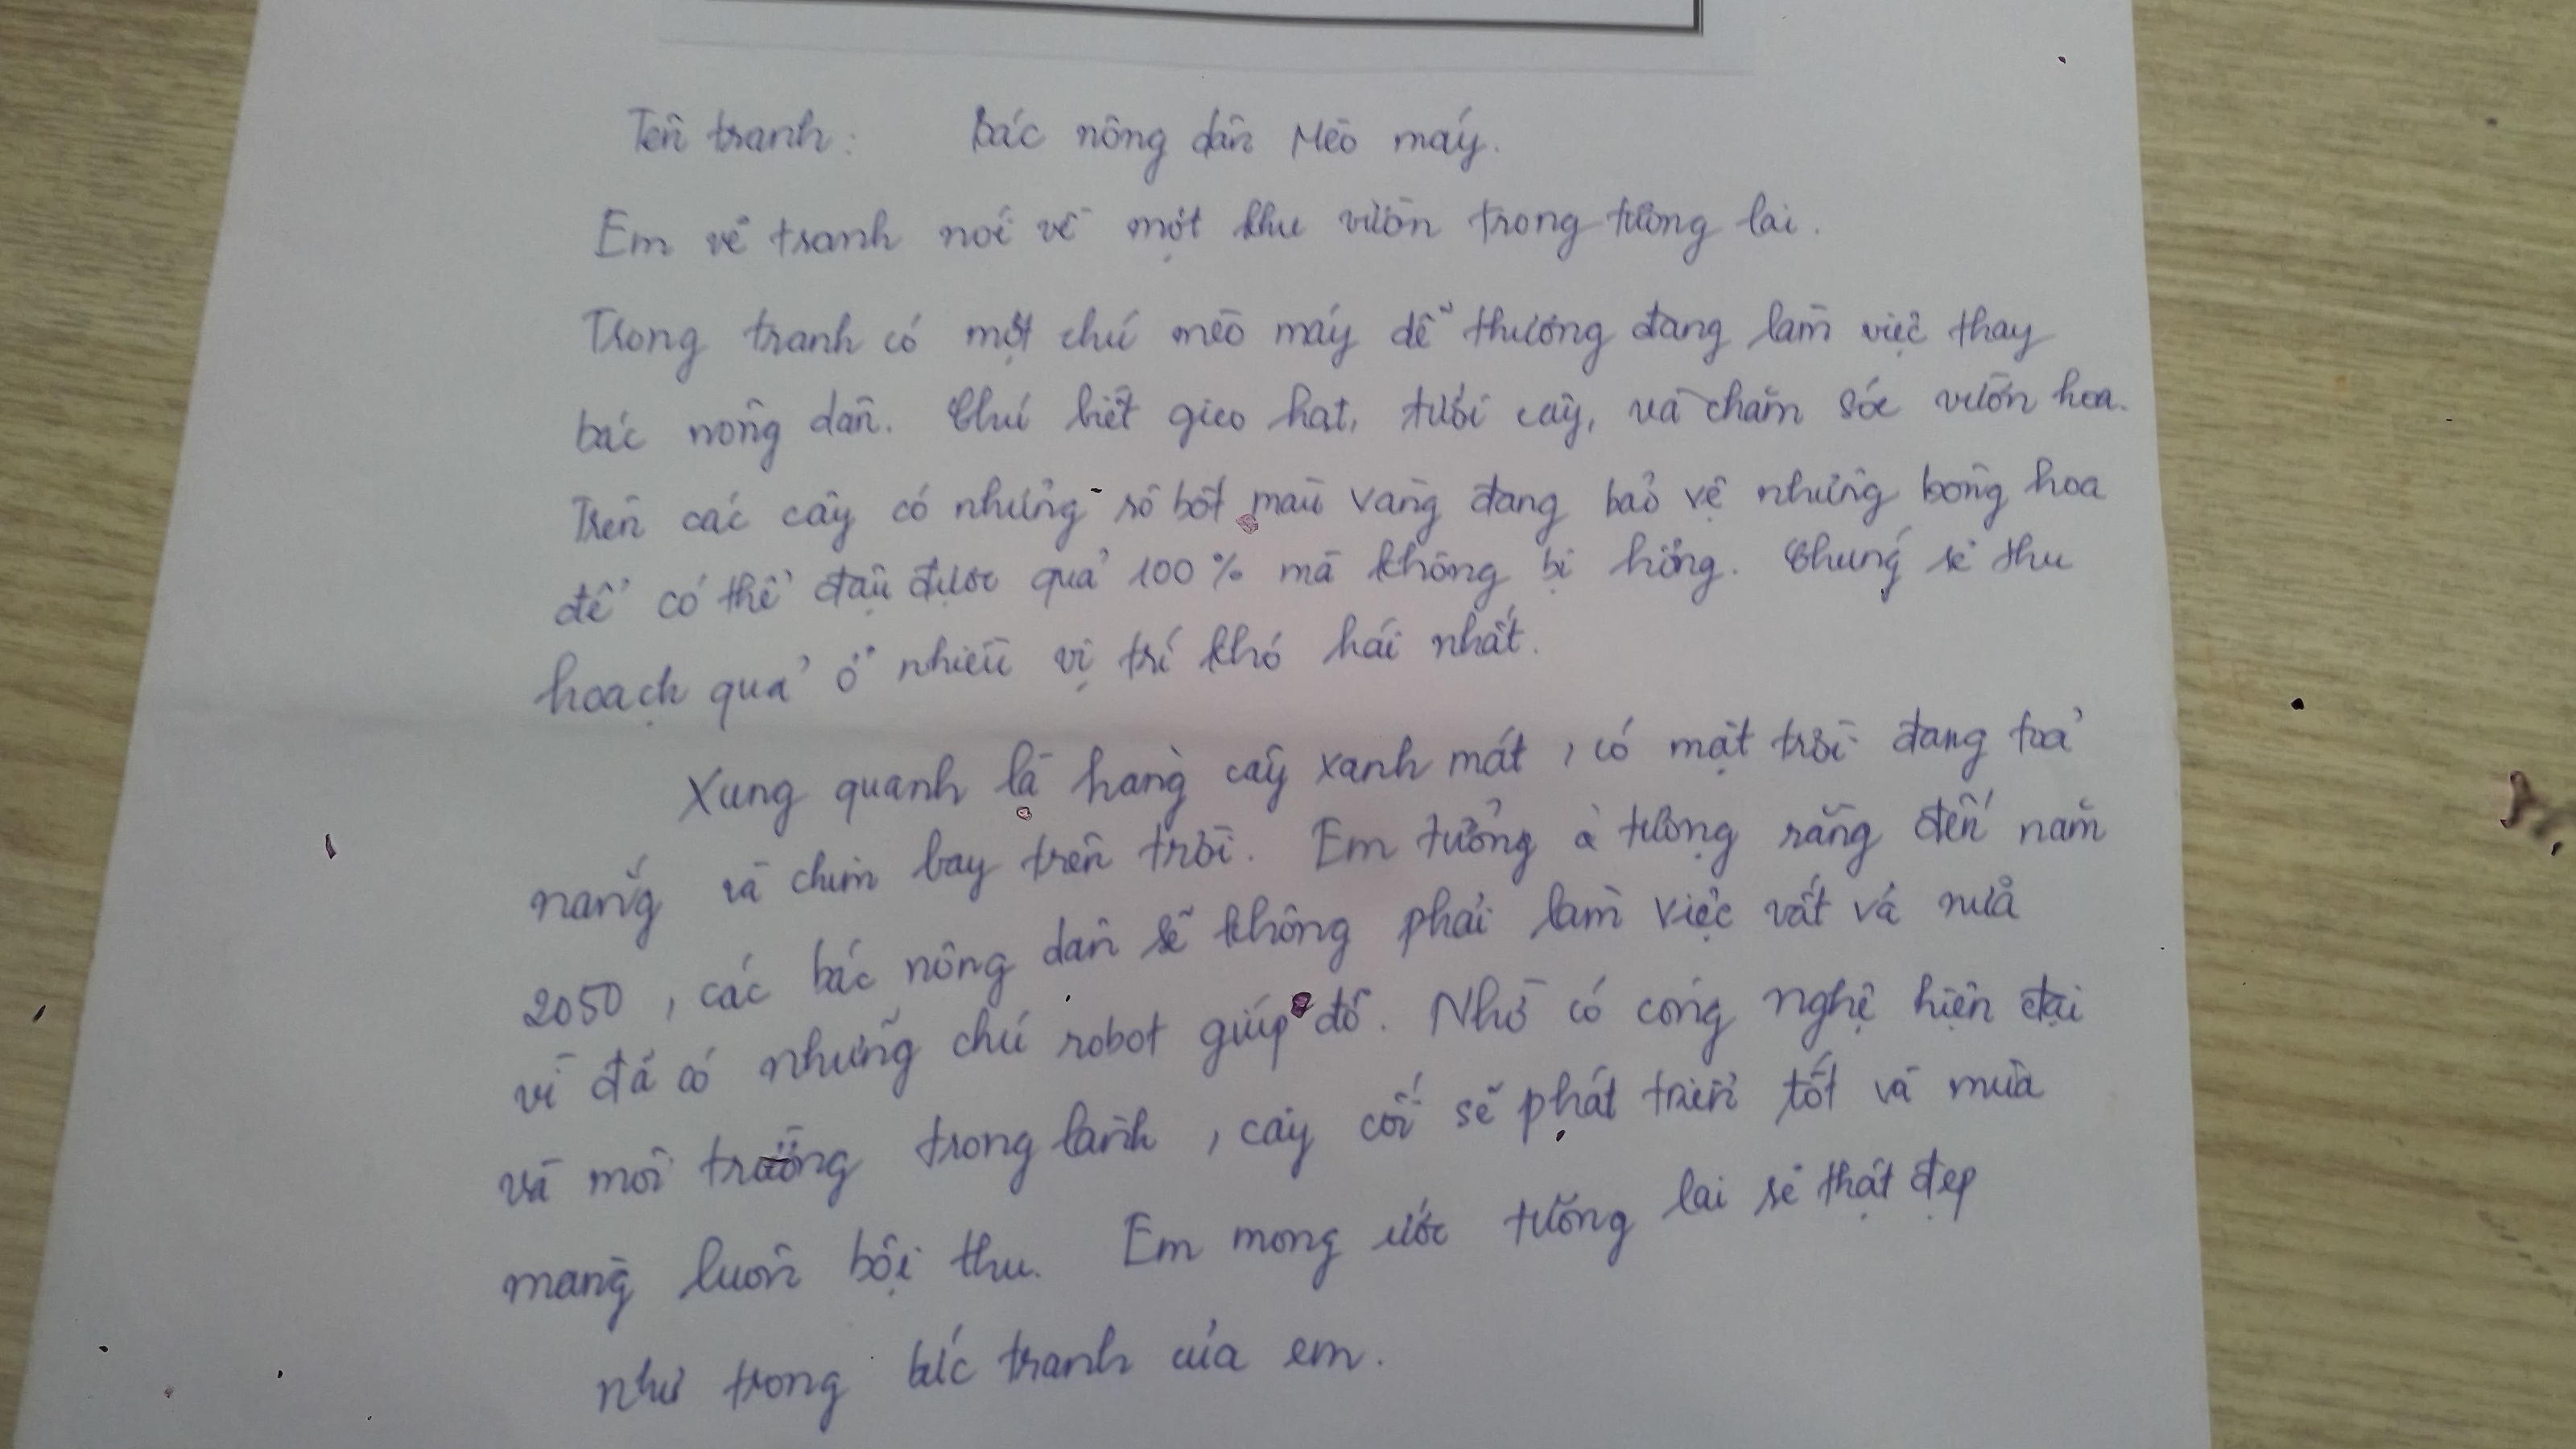 Tên tranh: Bác nông dân Mèo máy.
Em vẽ tranh nói về một khu vườn trong tương lai.
Trong tranh có một chú mèo máy dễ thương đang làm việc thay
bác nông dân. Chú biết gieo hạt, tưới cây, và chăm sóc vườn hoa.
Trên các cây có những rô bốt màu vàng đang bảo vệ những bông hoa
để có thể đậu được quả 100% mà không bị hỏng. Chúng sẽ thu
hoạch quả ở nhiều vị trí khó hái nhất.
Xung quanh là hàng cây xanh mát, có mặt trời đang toả
nắng và chim bay trên trời. Em tưởng à tượng rằng đến năm
2050, các bác nông dân sẽ không phải làm việc vất vả nữa
vì đã có những chú robot giúp đỡ. Nhờ có công nghệ hiện đại
và môi trường trong lành, cây cối sẽ phát triển tốt và mùa
màng luôn bội thu. Em mong ước tương lai sẽ thật đẹp
như trong bức tranh của em.